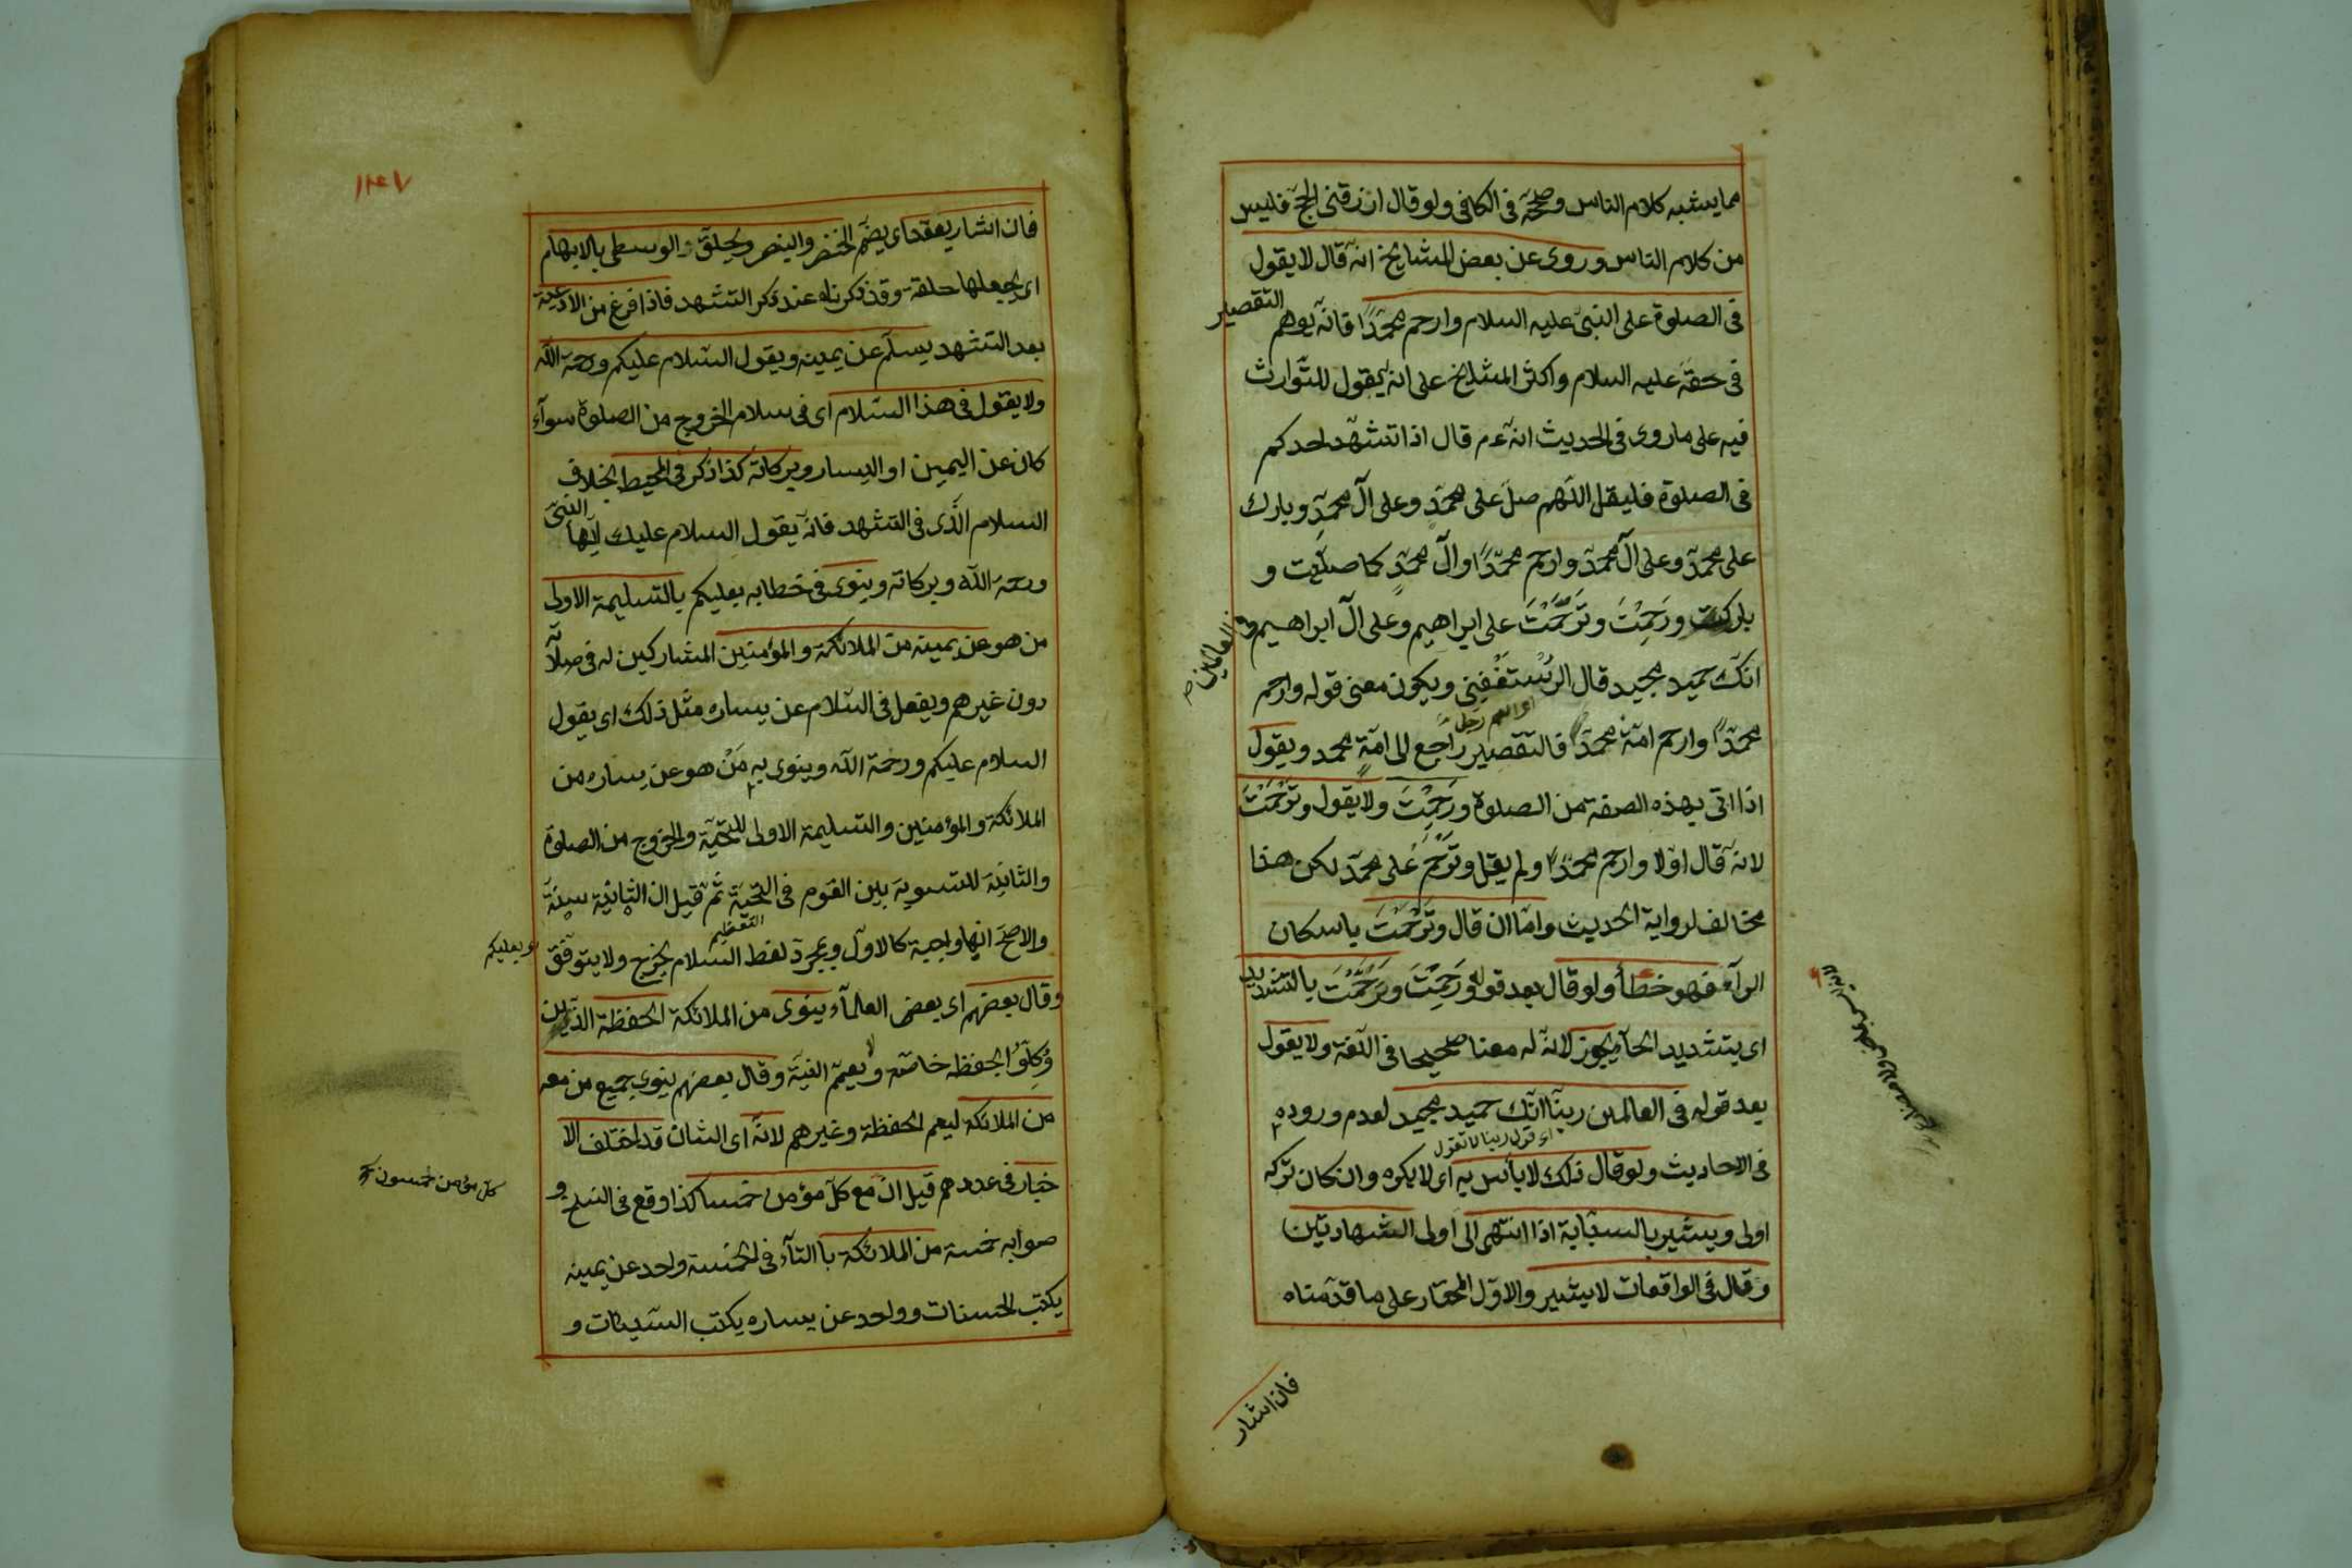 مما يشبه كلام الناس وصححه فى الكافى ولو قال ارزقنى الحج فليس
من كلام الناس وروى عن بعض المشايخ انه قال لا يقول
فى الصلوة على النبى عليه السلام وارحم محمدا فانه يوهم التقصير
فى حقه عليه السلام واكثر المشايخ على انه يقول للتوارث
فيه على ما روى فى الحديث انه عم قال اذا تشهد احدكم
فى الصلوة فليقل اللهم صل على محمد وعلى آل محمد وبارك
على محمد وعلى آل محمد وارحم محمدا وآل محمد كما صليت و
باركت ورَحِمْتَ وتَرَحَّمْتَ على ابراهيم وعلى آل ابراهيم فى العالمين
انك حميد مجيد قال الرُسْتغْفِنى ويكون معنى قوله وارحم
محمدا وارحم امة محمد فالتقصير راجع الى امة محمد ويقول
اذا اتى بهذه الصفة من الصلوة ورَحِمْتَ ولا يقول وتَرْحَمْتَ
لانه قال اولا وارحم محمدا ولم يقل وتَرَحَّمْ على محمد لكن هذا
مخالف لرواية الحديث واما ان قال وتَرْحَمْتَ باسكان
الرآء فهو خطأ ولو قال بعد قوله ورَحِمْتَ وتَرَحَّمْتَ بالتشديد
اى بتشديد الحآء يجوز لانه له معنا صحيحا فى اللغة ولا يقول
بعد قوله فى العالمين ربنا انك حميد مجيد لعدم وروده
اى قول ربنا
فى الاحاديث ولو قال ذلك لا بأس به اى لا يكره وان كان تركه
اولى ويشير بالسبابة اذا انتهى الى اولى الشهادتين
وقال فى الواقعات لا يشير والاول المختار على ما قدمناه
فان اشار
١٤٧
فان اشار يعقد اى يضم الخنصر والبنصر ويحلق الوسطى بالابهام
اى يجعلها حلقة وقد ذكرناه عند ذكر التشهد فاذا فرغ من الادعية
بعد التشهد يسلم عن يمينه ويقول السلام عليكم ورحمة الله
ولا يقول فى هذا السلام اى فى سلام الخروج من الصلوة سوآء
كان عن اليمين او اليسار وبركاته كذا ذكر فى المحيط بخلاف
السلام الذى فى التشهد فانه يقول السلام عليك ايها النبى
ورحمة الله وبركاته وينوى فى خطابه بعليكم بالتسليمة الاولى
من هو عن يمينه من الملائكة والمؤمنين المشاركين له فى صلاته
دون غيرهم ويفعل فى السلام عن يساره مثل ذلك اى يقول
السلام عليكم ورحمة الله وينوى به مَنْ هو عن يساره من
الملائكة والمؤمنين والتسليمة الاولى للتحية والخروج من الصلوة
والثانية للتسوية بين القوم فى التحية ثم قيل ان الثانية سنة
والاصح انها واجبة كالاول وبمجرد لفظ السلام يخرج ولا يتوقف
بعليكم
وقال بعضهم اى بعض العلمآء ينوى من الملائكة الحفظة الذين
وُكِلُو الحفظه خاصة ولا يعمم النية وقال بعضهم ينوى جميع من معه
من الملائكة ليعم الحفظة وغيرهم لانه اى الشان قد اختلف الا
خبار فى عددهم قيل ان مع كل مؤمن خمسا كذا وقع فى النسخ و
كل مؤمن خمسون
صوابه خمسة من الملائكة بالتآء فى الخمسة واحد عن يمينه
يكتب الحسنات وواحد عن يساره يكتب السيئات و